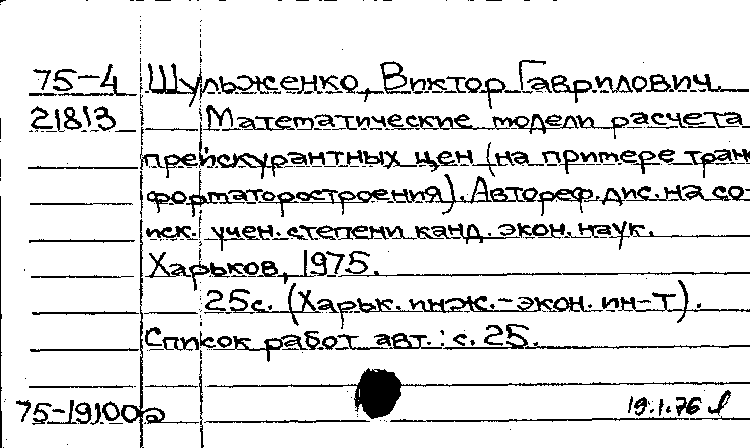 75-4 Шульженко, Виктор Гаврилович.
21813 Математические модели расчета
прейскурантных цен (на примере транс
форматоростроения). Автореф. дис. на со-
иск. учен. степени канд. экон. наук.
Харьков, 1975.
25с. (Харьк. инж.-экон. ин-т).
Список работ авт.: с. 25.
75-19100а 19.1.76